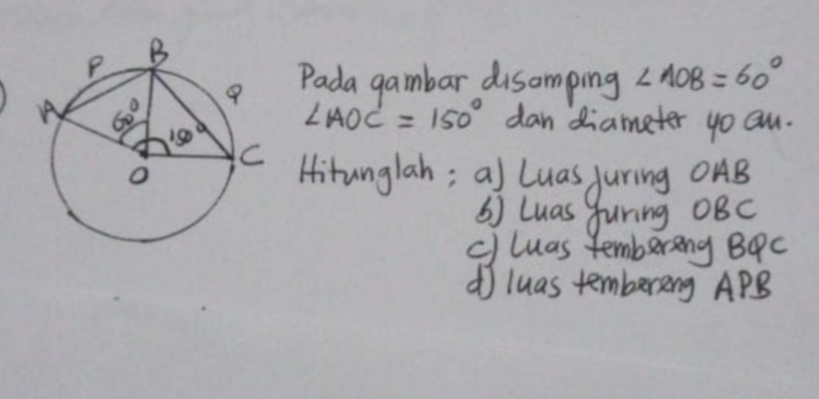 B
P
Q
A
60°
150°
C
O
Pada gambar disamping ∠AOB = 60°
∠AOC = 150° dan diameter 40 cm.
Hitunglah : a) Luas juring OAB
b) Luas juring OBC
c) Luas tembereng BQC
d) luas tembereng APB